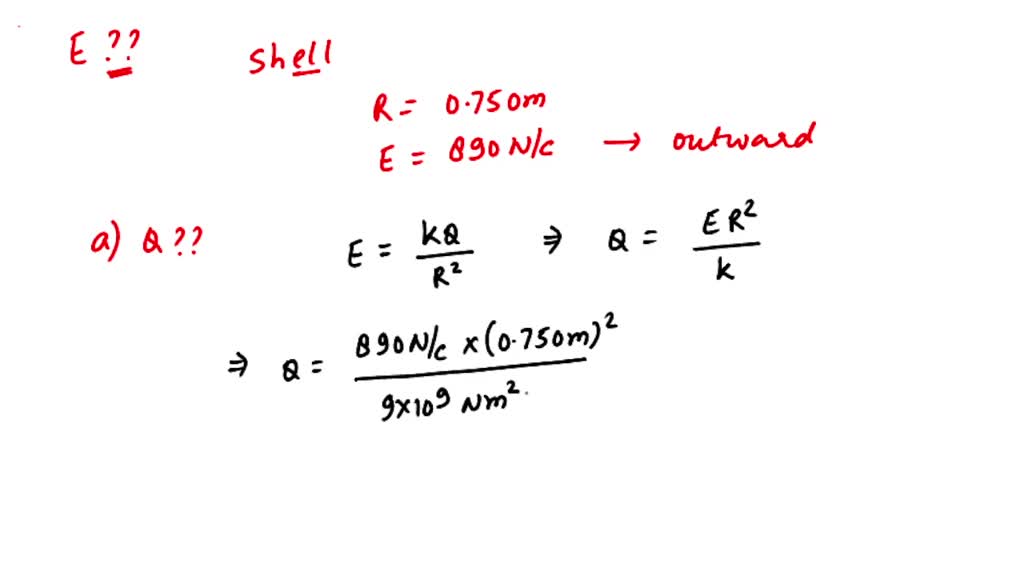 E ?? shell
R = 0.750m
E = 890 N/c → outward
a) Q ?? E = kQ/R² ⇒ Q = ER²/k
⇒ Q = 890N/c × (0.750m)² / 9×10⁹ Nm²